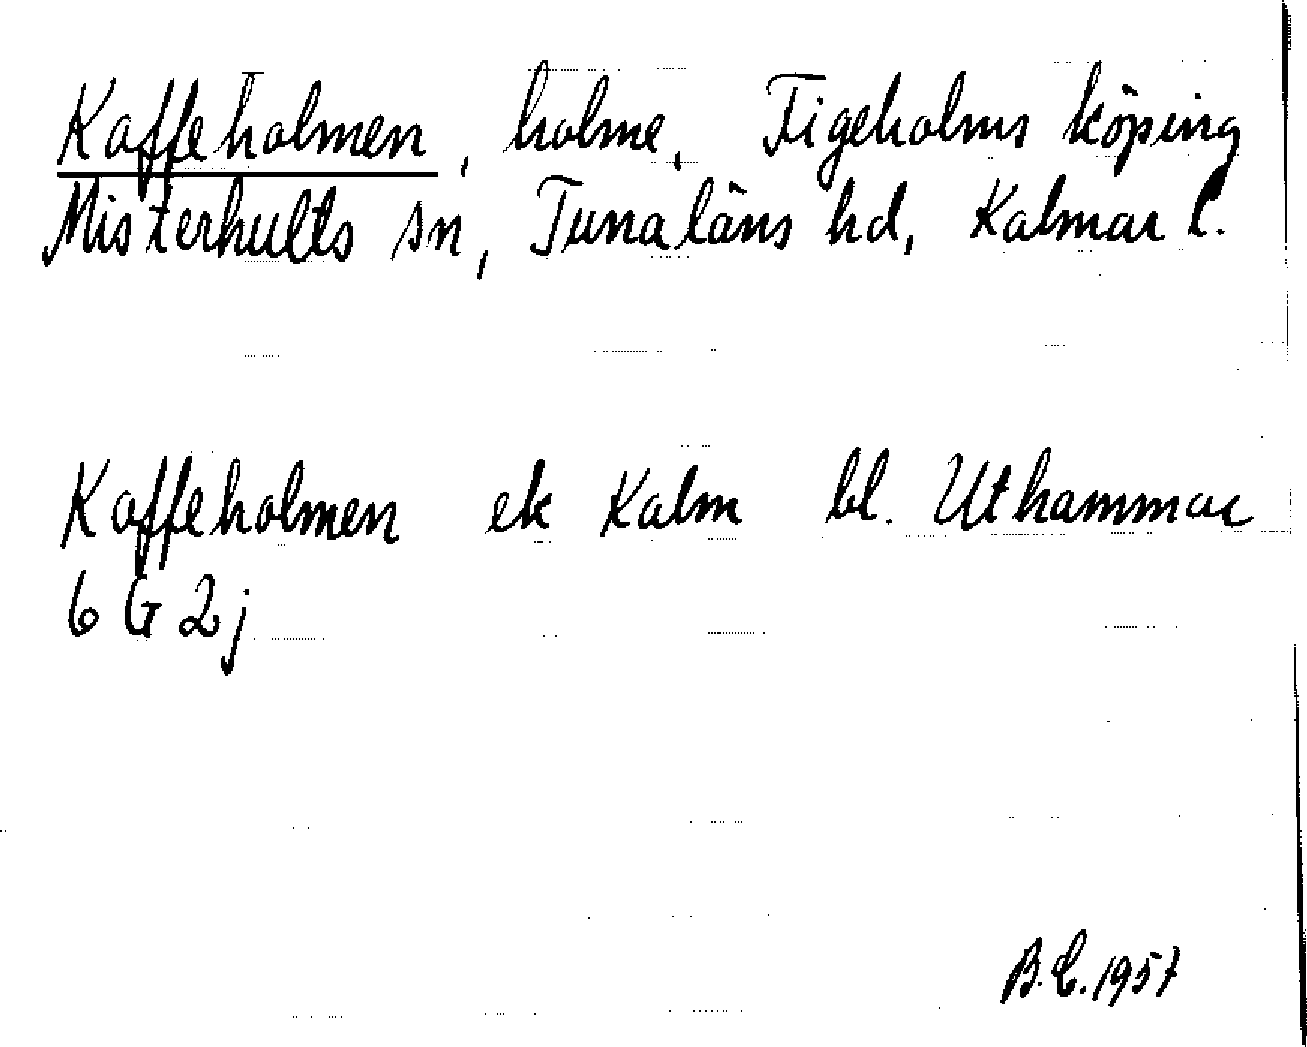 Kaffeholmen, holme, Figeholms köping
Misterhults sn, Tunaläns hd, Kalmar l.
Kaffeholmen ek Kalm bl. Uthammar
6 G 2j
B.E. 1957